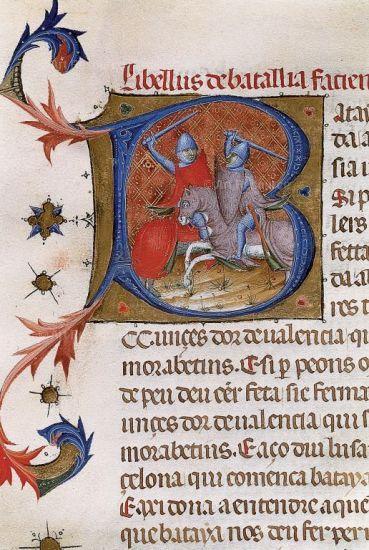 Libellus de batallia facien
Bataya
da la
sia i
Si p
lers
fetta
da al
res t
CC. unçes dor de valencia qu
morabetins. E si p peons o
de peu deu eer feta sie ferma
unçes dor de valencia qui s
morabetins. E aço diu lusa
çelona qui comenca bataya
E axi dona a entendre aque
que bataya nos deu fer peri